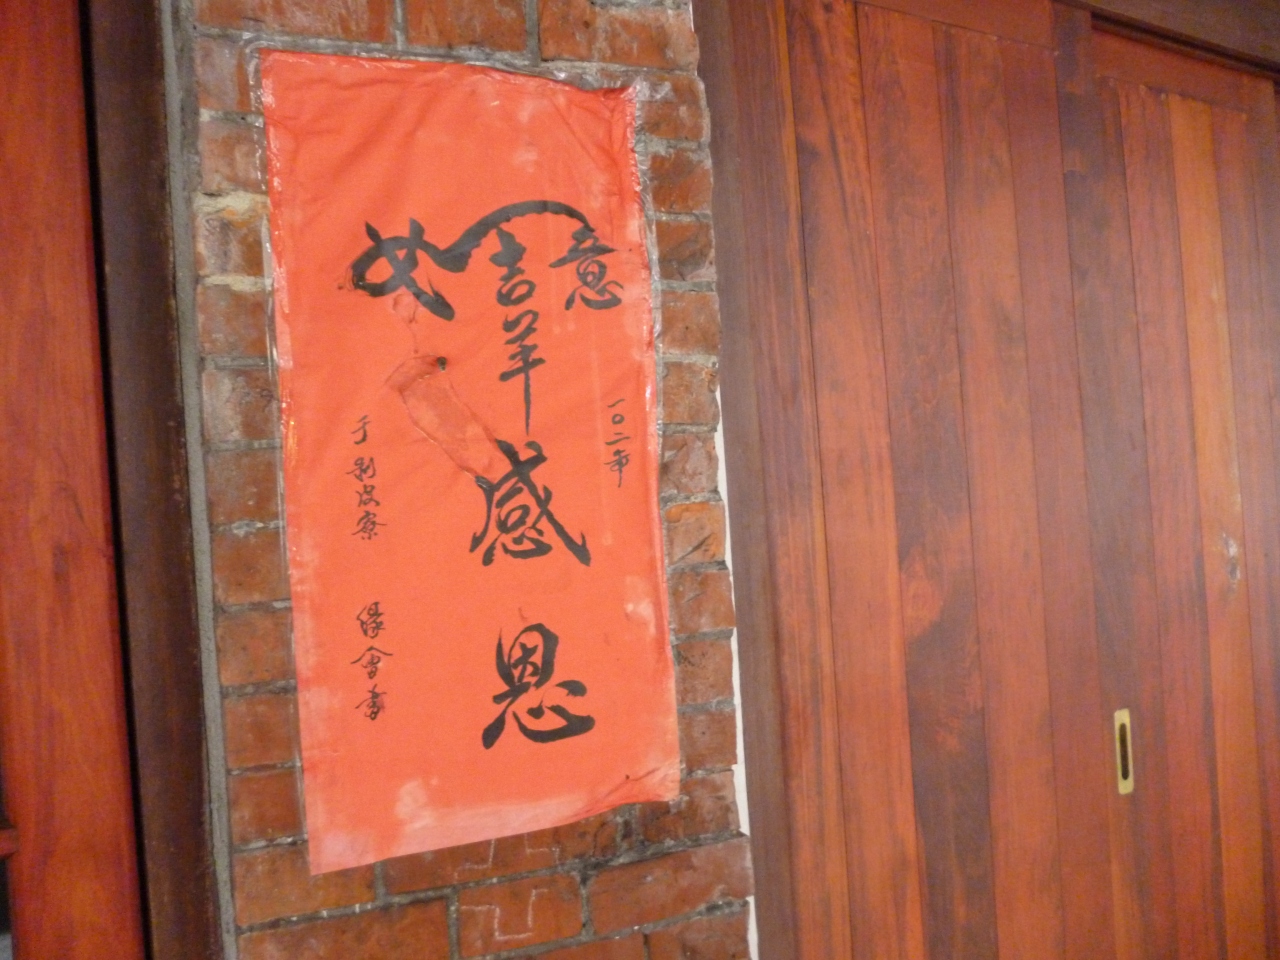 如意
一〇二年
吉羊感恩
于剝皮寮 緣會書